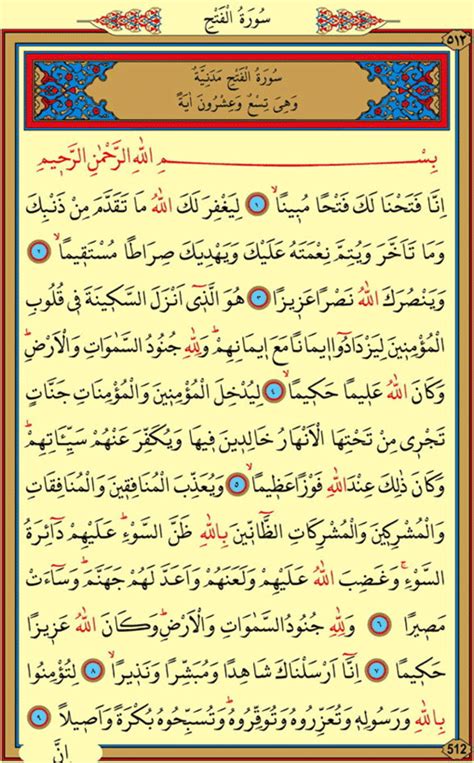 سُورَةُ الْفَتْحِ
٥١٢
سُورَةُ الْفَتْحِ مَدَنِيَّةٌ
وَهِىَ تِسْعٌ وَعِشْرُونَ اٰيَةً
بِسْمِ اللّٰهِ الرَّحْمٰنِ الرَّح۪يمِ
اِنَّا فَتَحْنَا لَكَ فَتْحًا مُب۪ينًاۙ ﴿١﴾ لِيَغْفِرَ لَكَ اللّٰهُ مَا تَقَدَّمَ مِنْ ذَنْبِكَ
وَمَا تَاَخَّرَ وَيُتِمَّ نِعْمَتَهُ عَلَيْكَ وَيَهْدِيَكَ صِرَاطًا مُسْتَق۪يمًاۙ ﴿٢﴾
وَيَنْصُرَكَ اللّٰهُ نَصْرًا عَز۪يزًا ﴿٣﴾ هُوَ الَّذ۪ٓى اَنْزَلَ السَّك۪ينَةَ ف۪ى قُلُوبِ
الْمُؤْمِن۪ينَ لِيَزْدَادُٓوا ا۪يمَانًا مَعَ ا۪يمَانِهِمْۜ وَلِلّٰهِ جُنُودُ السَّمٰوَاتِ وَالْاَرْضِۜ
وَكَانَ اللّٰهُ عَل۪يمًا حَك۪يمًاۙ ﴿٤﴾ لِيُدْخِلَ الْمُؤْمِن۪ينَ وَالْمُؤْمِنَاتِ جَنَّاتٍ
تَجْر۪ى مِنْ تَحْتِهَا الْاَنْهَارُ خَالِد۪ينَ ف۪يهَا وَيُكَفِّرَ عَنْهُمْ سَيِّـَٔاتِهِمْۜ
وَكَانَ ذٰلِكَ عِنْدَ اللّٰهِ فَوْزًا عَظ۪يمًاۙ ﴿٥﴾ وَيُعَذِّبَ الْمُنَافِق۪ينَ وَالْمُنَافِقَاتِ
وَالْمُشْرِك۪ينَ وَالْمُشْرِكَاتِ الظَّٓانّ۪ينَ بِاللّٰهِ ظَنَّ السَّوْءِۜ عَلَيْهِمْ دَٓائِرَةُ
السَّوْءِۚ وَغَضِبَ اللّٰهُ عَلَيْهِمْ وَلَعَنَهُمْ وَاَعَدَّ لَهُمْ جَهَنَّمَۜ وَسَٓاءَتْ
مَص۪يرًا ﴿٦﴾ وَلِلّٰهِ جُنُودُ السَّمٰوَاتِ وَالْاَرْضِۜ وَكَانَ اللّٰهُ عَز۪يزًا
حَك۪يمًا ﴿٧﴾ اِنَّٓا اَرْسَلْنَاكَ شَاهِدًا وَمُبَشِّرًا وَنَذ۪يرًاۙ ﴿٨﴾ لِتُؤْمِنُوا
بِاللّٰهِ وَرَسُولِه۪ وَتُعَزِّرُوهُ وَتُوَقِّرُوهُۜ وَتُسَبِّحُوهُ بُكْرَةً وَاَص۪يلًا ﴿٩﴾
اِنَّ
512